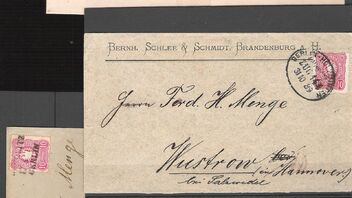 BERNH. SCHLEE & SCHMIDT, BRANDENBURG A. H.
31 10 89
10
Herrn Ferd. H. Menge
Wustrow
(in Hannover)
bei Salzwedel
Menge